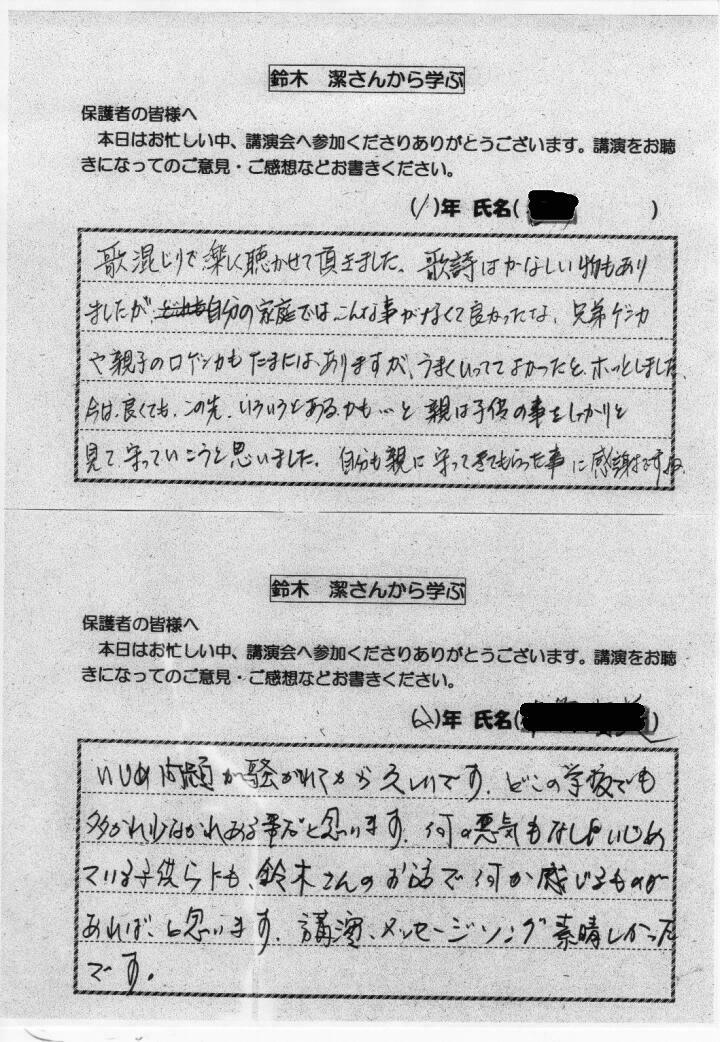 鈴木　潔さんから学ぶ
保護者の皆様へ
本日はお忙しい中、講演会へ参加くださりありがとうございます。講演をお聴
きになってのご意見・ご感想などお書きください。
(1)年 氏名(　　　)
歌混じりで楽しく聴かせて頂きました。歌詩はかなしい物もあり
ましたが、自分の家庭ではこんな事がなくて良かったな、兄弟ゲンカ
や親子の口ゲンカもたまには、ありますが、うまくいっててよかったと、ホッとしました。
今は、良くても、この先、いろいろとあるかも…と親は子供の事をしっかりと
見て、守っていこうと思いました。自分も親に守ってきてもらった事に感謝ですね。
鈴木　潔さんから学ぶ
保護者の皆様へ
本日はお忙しい中、講演会へ参加くださりありがとうございます。講演をお聴
きになってのご意見・ご感想などお書きください。
(2)年 氏名(　　　)
いじめ問題が騒がれてから久しいです。どこの学校でも
多かれ少なかれある事だと思います。何の悪気もなしにいじめ
ている子供らにも、鈴木さんのお話で何か感じるものが
あれば、と思います。講演、メッセージソング素晴しかった
です。